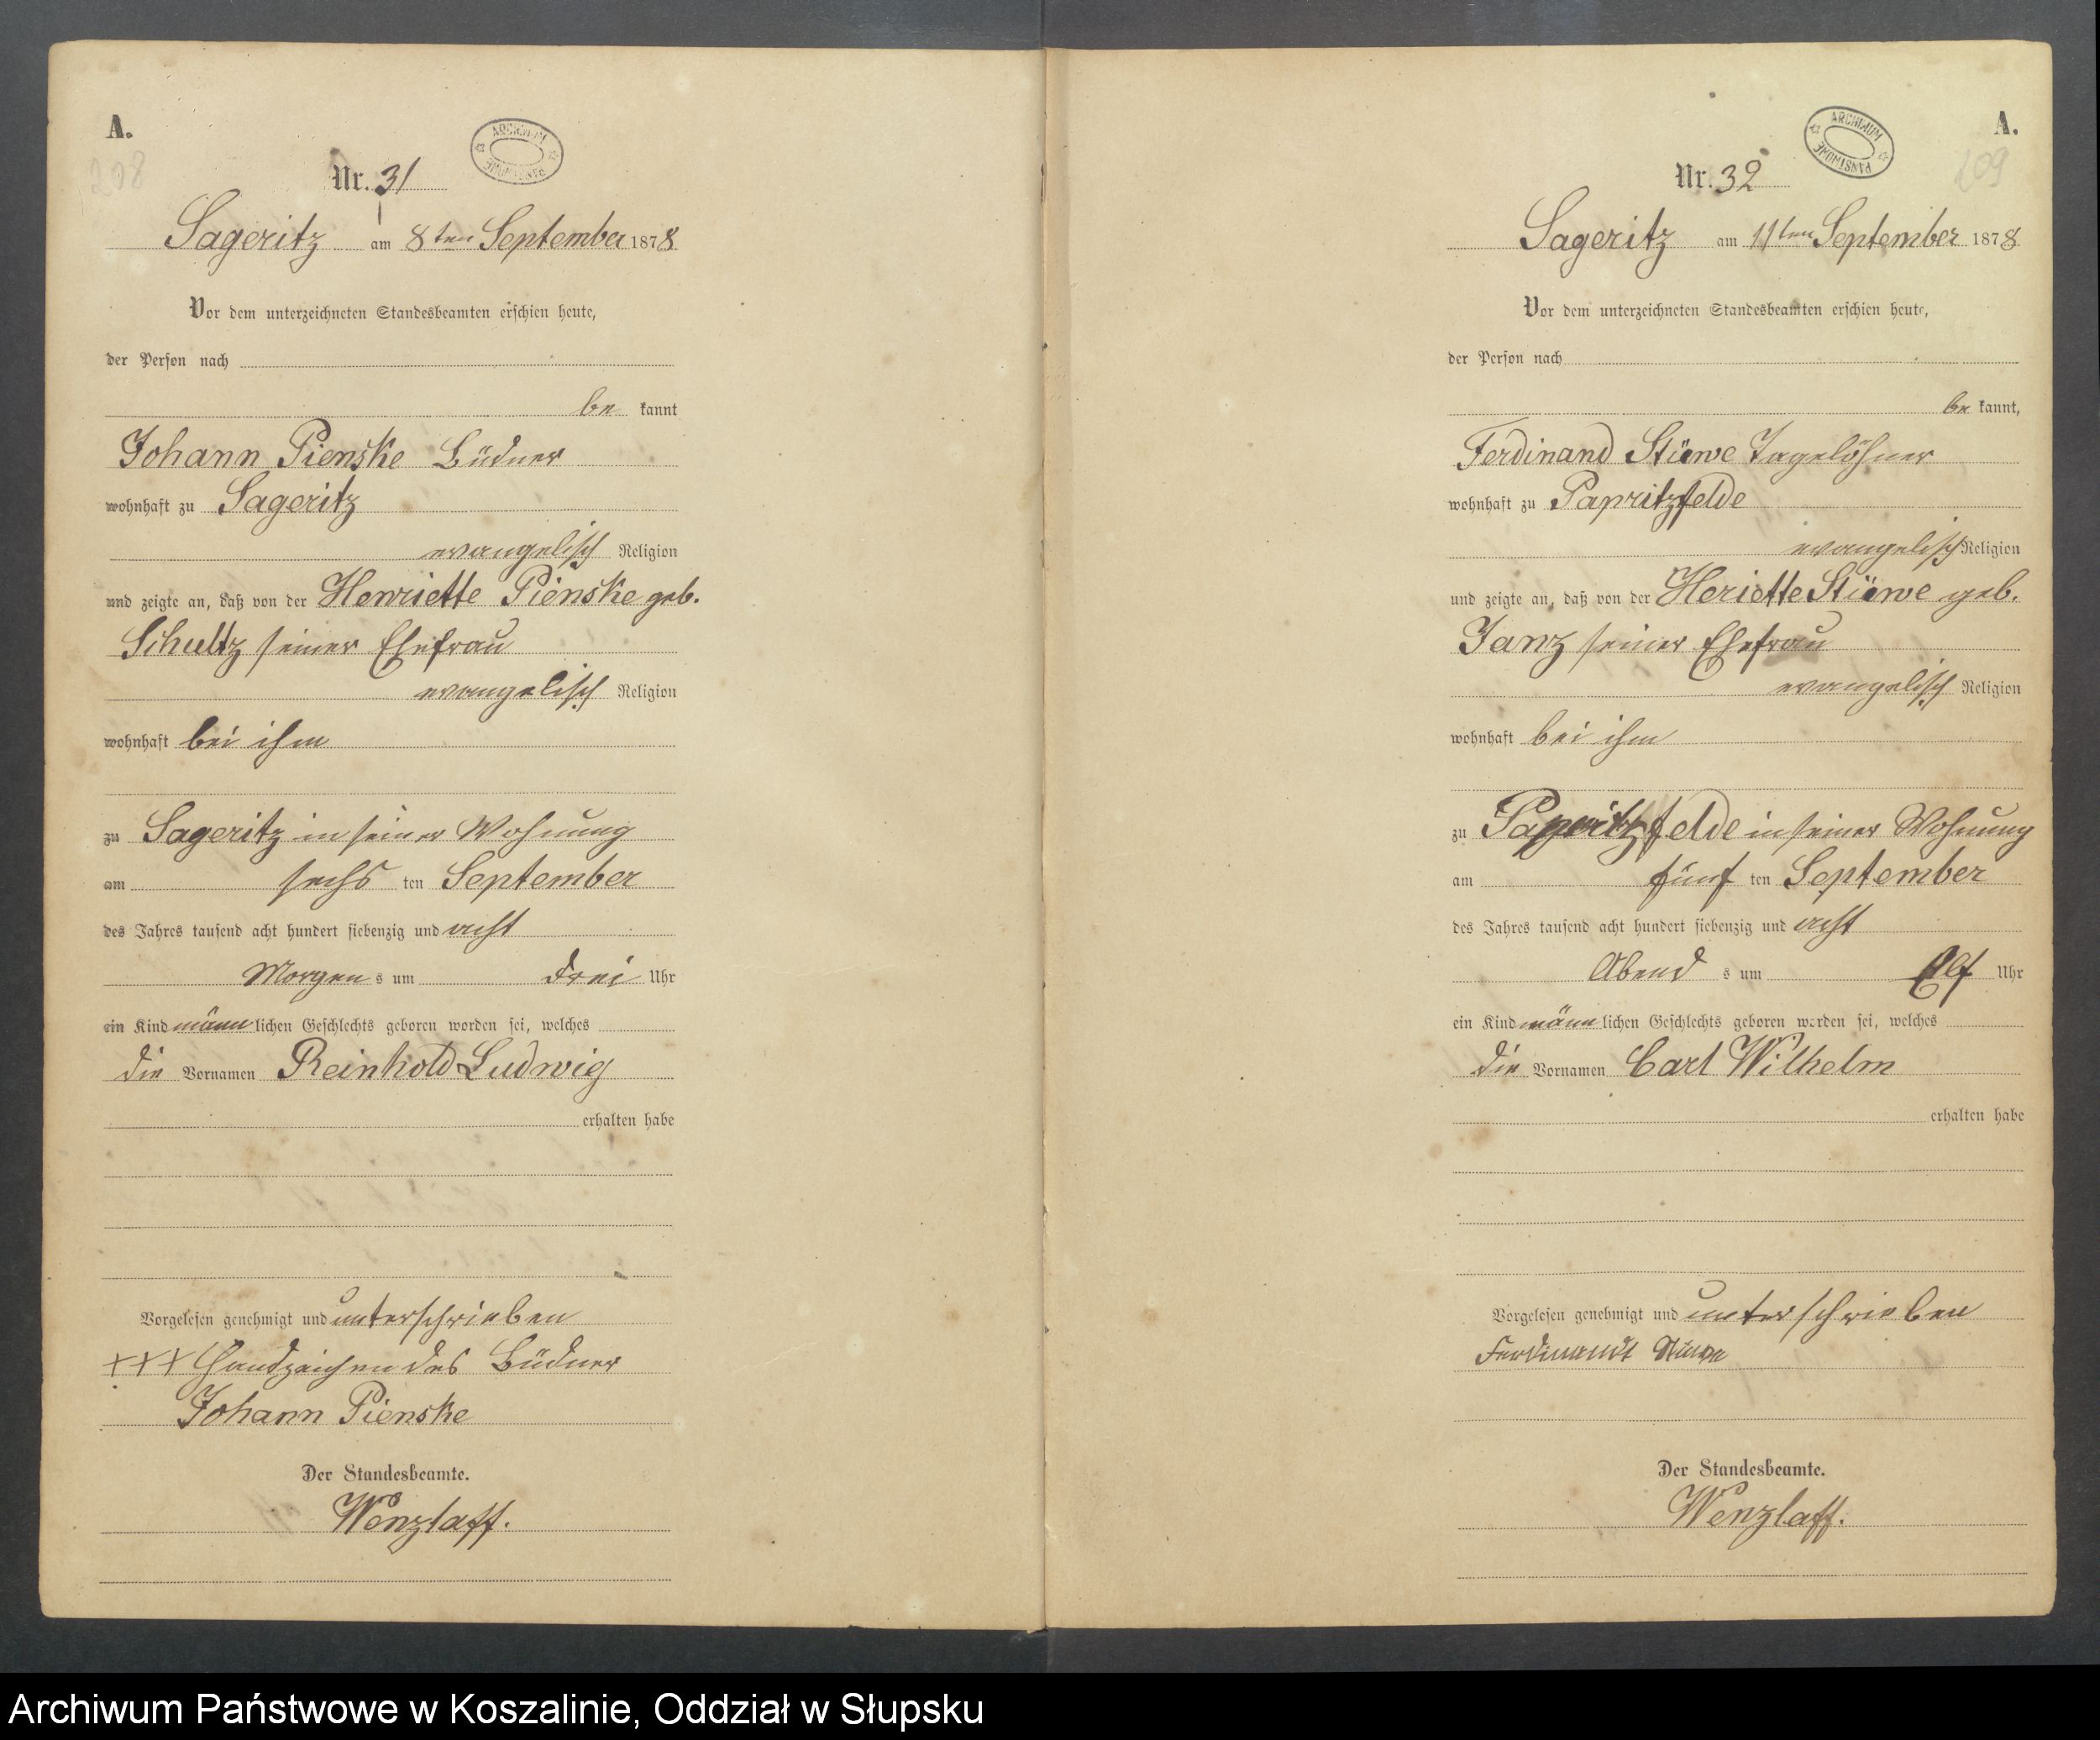 A.
208
ARCHIWUM PAŃSTWOWE
Nr. 31
Sageritz am 8ten September 1878
Vor dem unterzeichneten Standesbeamten erschien heute,
der Person nach
be kannt
Johann Pienske Büdner
wohnhaft zu Sageritz
evangelisch Religion
und zeigte an, daß von der Henriette Pienske geb.
Schultz seiner Ehefrau
evangelisch Religion
wohnhaft bei ihm
zu Sageritz in seiner Wohnung
am sechs ten September
des Jahres tausend acht hundert siebenzig und acht
Morgen s um drei Uhr
ein Kind männ lichen Geschlechts geboren worden sei, welches
die Vornamen Reinhold Ludwig
erhalten habe
Vorgelesen genehmigt und unterschrieben
+++ Handzeichen des Büdner
Johann Pienske
Der Standesbeamte.
Wenzlaff.
A.
209
ARCHIWUM PAŃSTWOWE
Nr. 32
Sageritz am 11ten September 1878
Vor dem unterzeichneten Standesbeamten erschien heute,
der Person nach
be kannt,
Ferdinand Stüwe Tagelöhner
wohnhaft zu Papritzfelde
evangelisch Religion
und zeigte an, daß von der Heriette Stüwe geb.
Janz seiner Ehefrau
evangelisch Religion
wohnhaft bei ihm
zu Papritzfelde in seiner Wohnung
am fünf ten September
des Jahres tausend acht hundert siebenzig und acht
Abend s um Elf Uhr
ein Kind männ lichen Geschlechts geboren worden sei, welches
die Vornamen Carl Wilhelm
erhalten habe
Vorgelesen genehmigt und unterschrieben
Ferdinandt Stüwe
Der Standesbeamte.
Wenzlaff.
Archiwum Państwowe w Koszalinie, Oddział w Słupsku